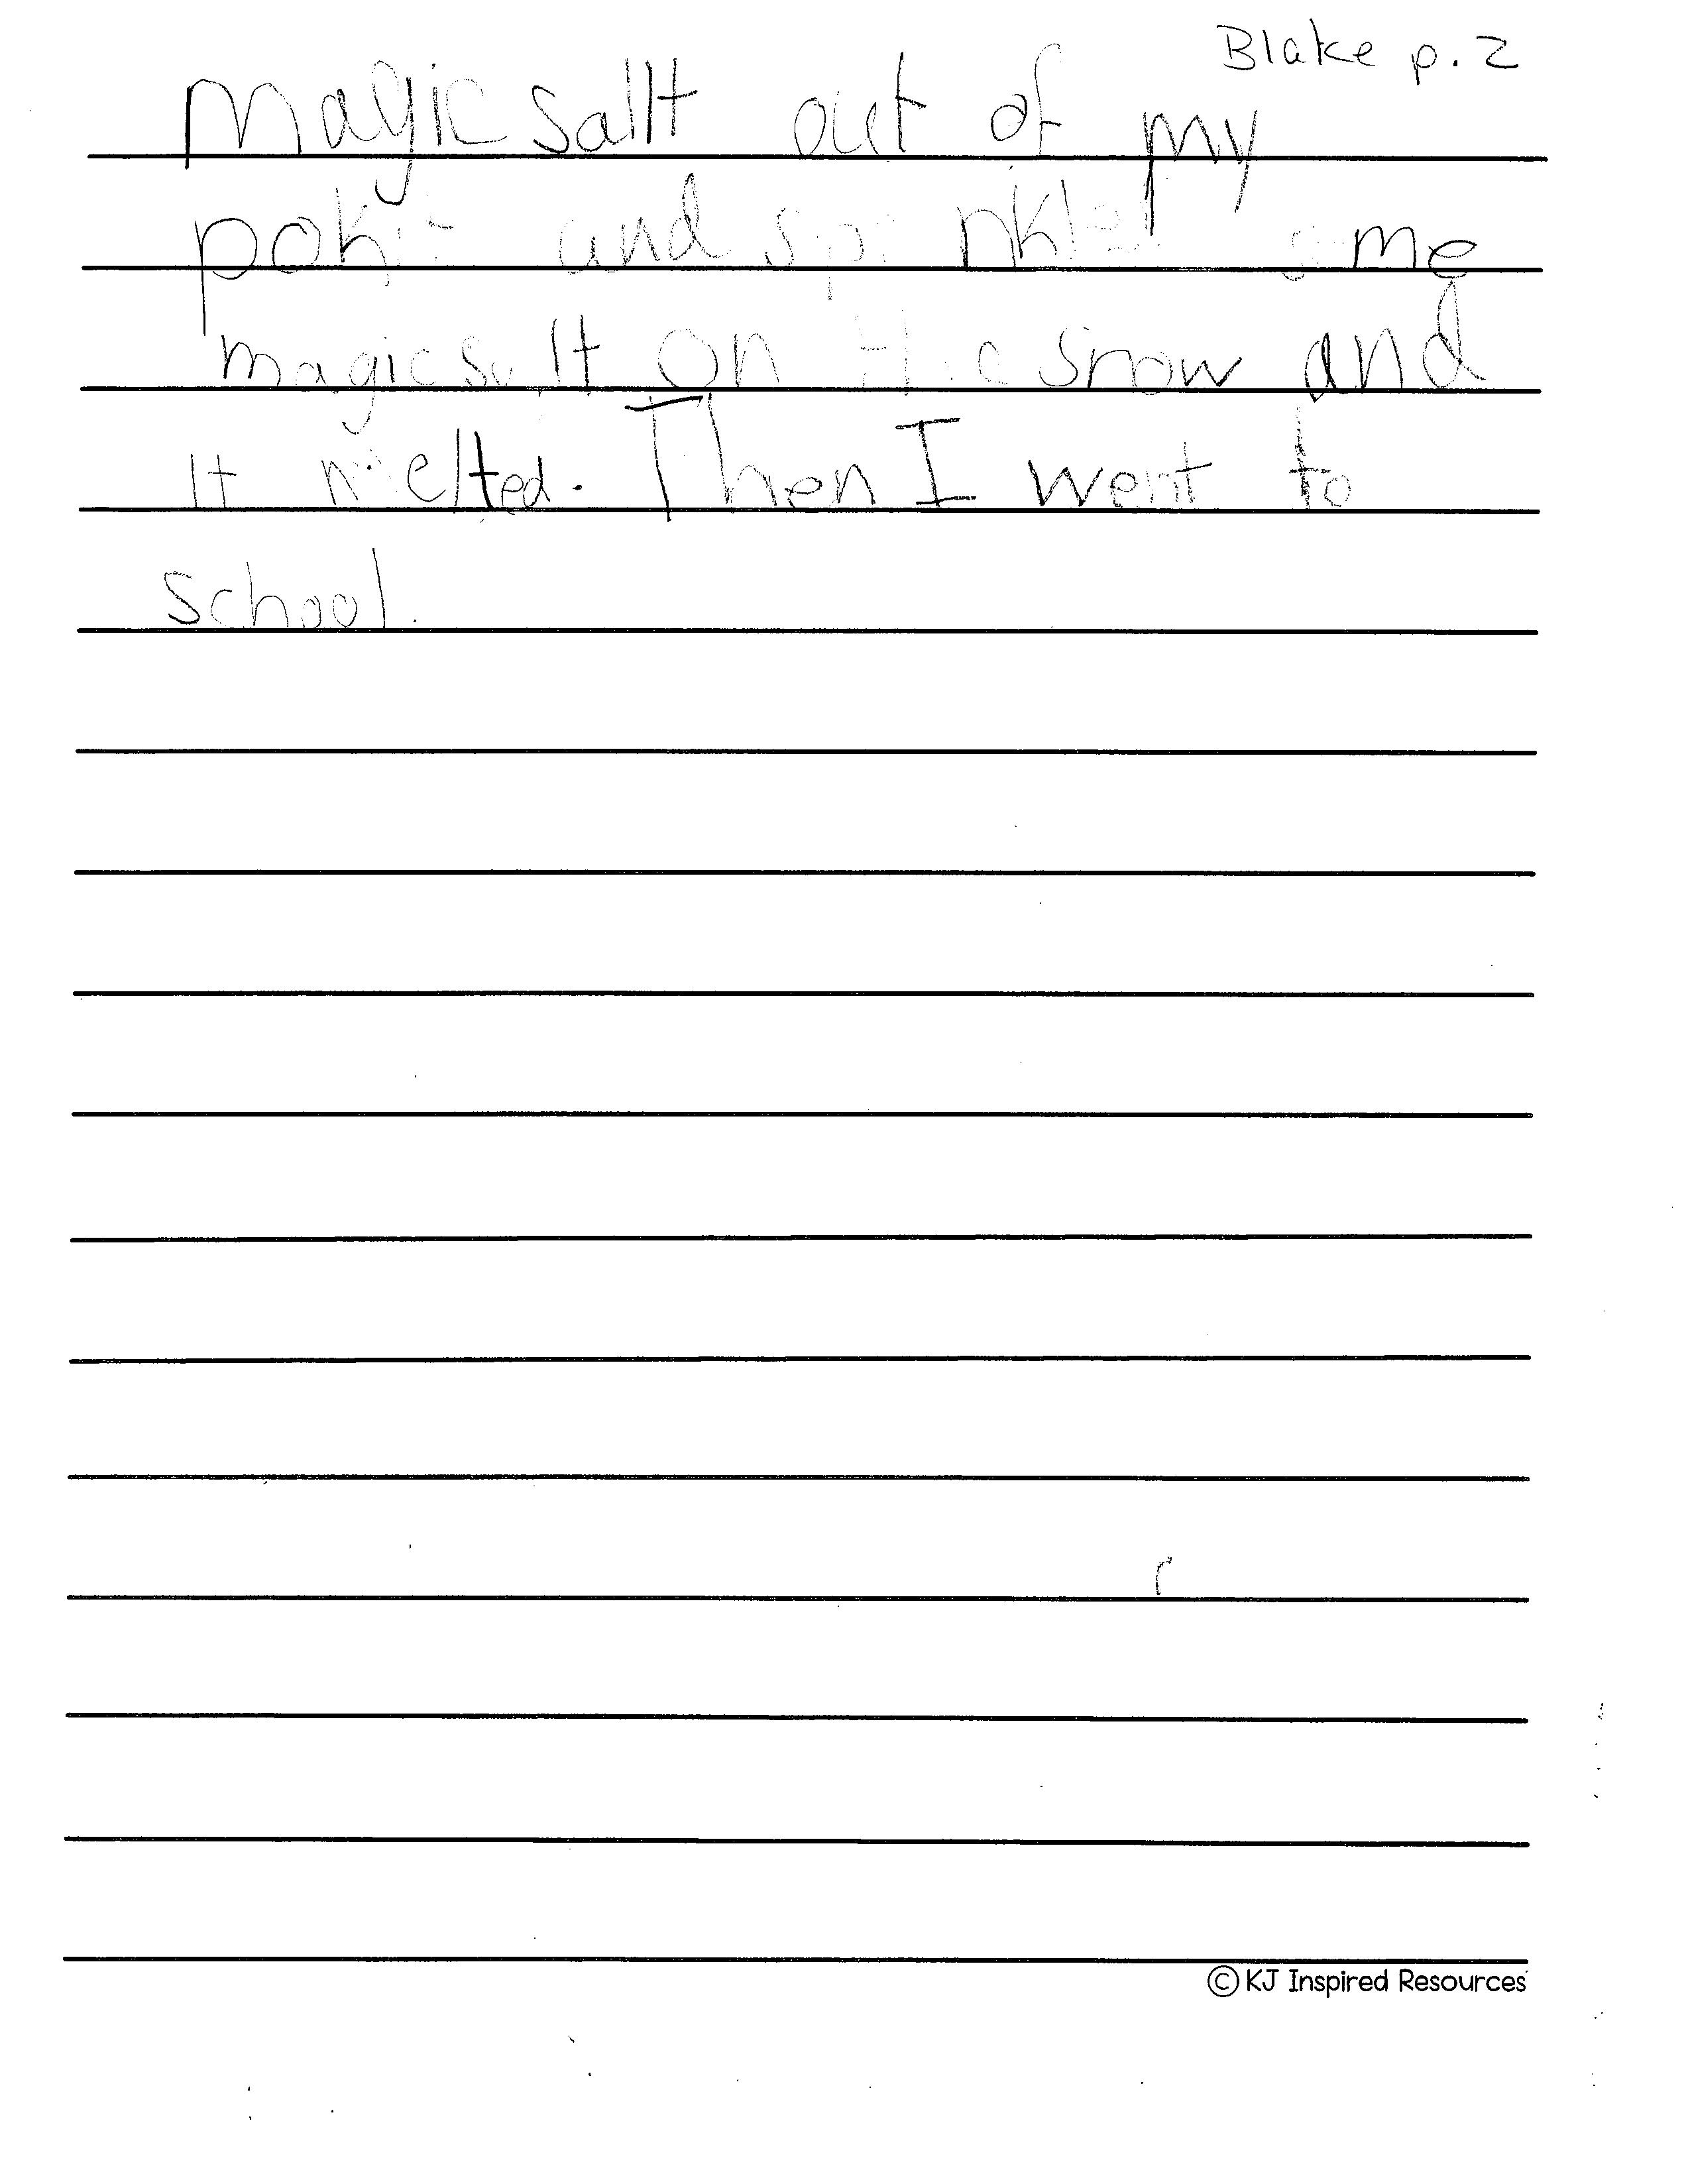 Blake p. 2
Magic sallt out of my
pokit and sprinkled some
magic salt on the snow and
It melted. Then I went to
school.
© KJ Inspired Resources